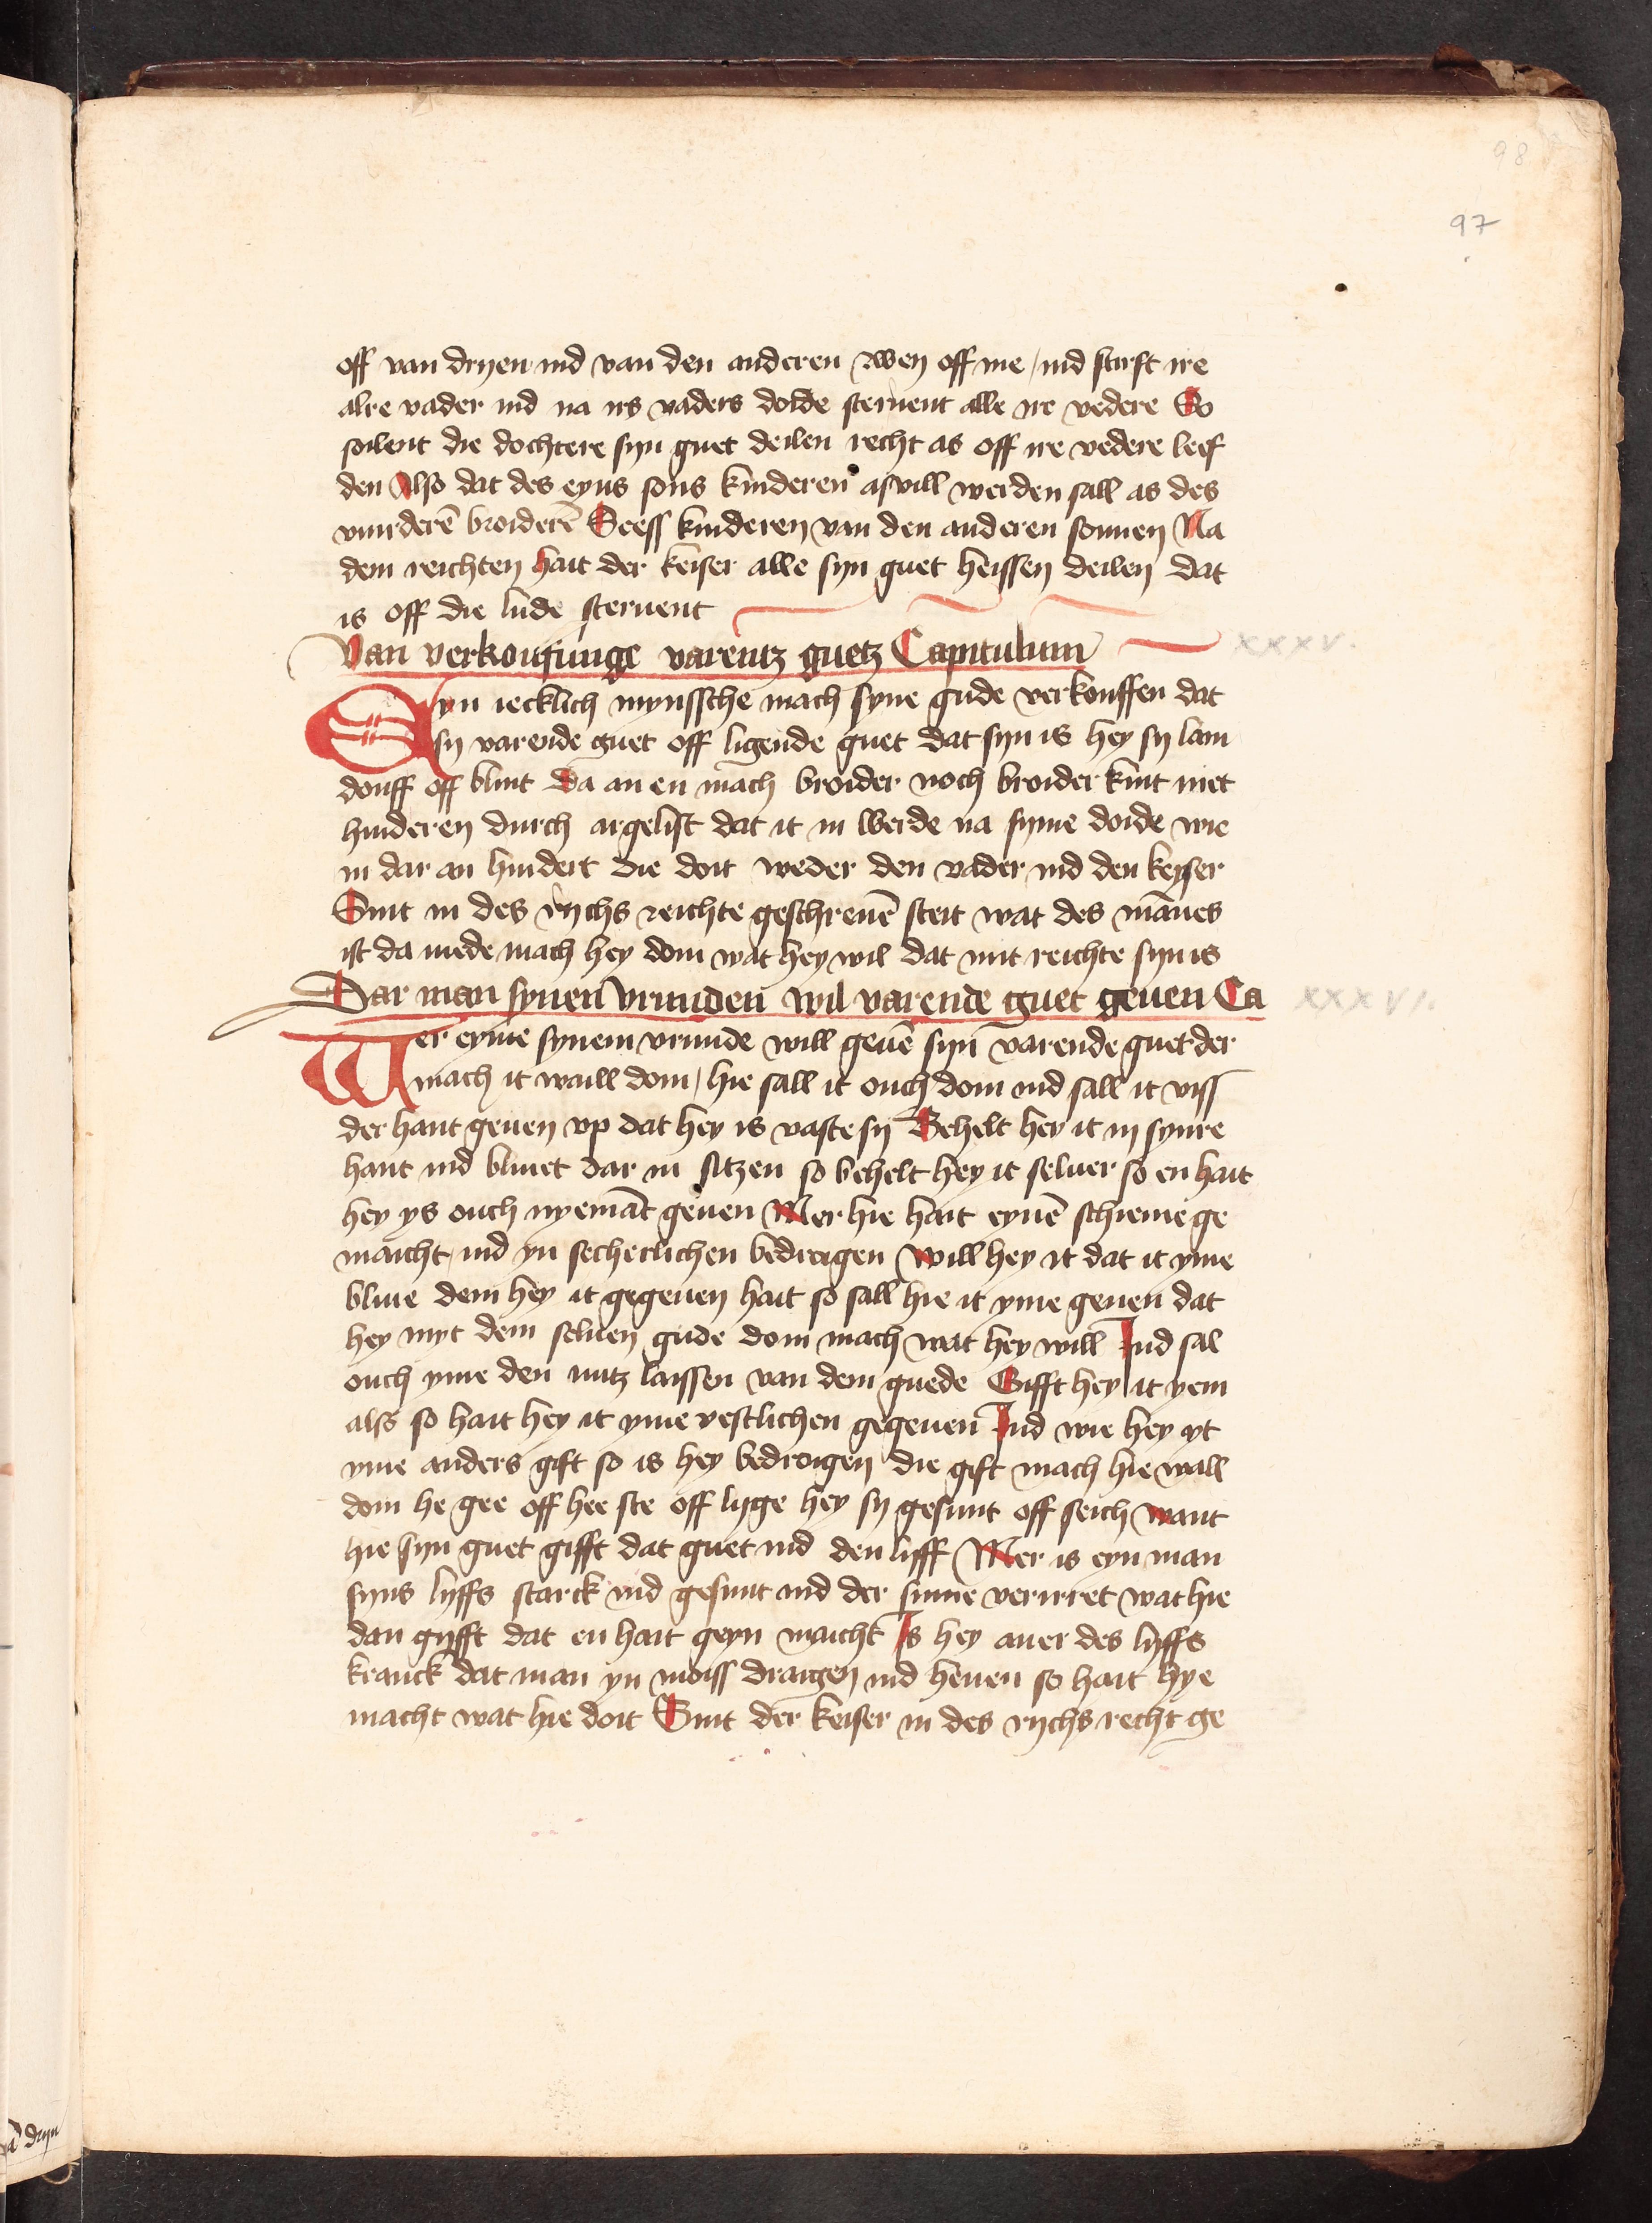 98
97
off van dryen ind van den anderen zwey off me / ind stirft ire
alre vader ind na irs vaders doide steruent alle ire vedere So
soilent die dochtere syn guet deilen recht as off ire vedere leef
den Also dat des eyns sons kinderen as vill werden sall as des
vurderē broiderē Seess kinderen van den anderen sonnen Na
dem reichten hait der keiser alle syn guet heissen deilen dat
is off die lude steruent
Van verkouffinge varentz guetz Capitulum
xxxv.
Eyn iecklich mynssche mach syne gude verkouffen dat
sy varende guet off ligende guet dat syn is hey sy lam
douff off blint Da an en mach broider noch broider kint niet
hinderen durch argelist dat it in werde na syme doide wie
in dar an hindert die doit weder den vader ind den keyser
Sint in des rychs reichte geschreuē steit wat des mānes
ist da mede mach hey doin wat hey wil dat mit reichte syn is
Dar man synen vrunden wil varende guet geuen Ca
xxxvi.
Wer eyme synem vrunde will geuē syn varende guet der
mach it waill doin / hie sall it ouch doin ind sall it viss
der hant geuen vp dat hey is vaste sy Behelt hey it in synre
hant ind bliuet dar in sitzen so behelt hey it seluer so en hait
hey ys ouch nyemāt geuen Mer hie hait eynē schieme ge
maicht ind yn secherlichen bedragen Will hey it dat it yme
bliue dem hey it gegeuen hait so sall hie it yme geuen dat
hey myt dem seluen gude doin mach wat hey will Ind sal
ouch yme den nutz laissen van dem guede Gifft hey it yem
alss so hait hey it yme vestlichen gegeuen Ind wie hey yt
yme anders gift so is hey bedroigen die gift mach hie wall
doin he gee off hee ste off lyge hey sy gesunt off seich want
hie syn guet gifft dat guet ind den lyff Mer is eyn man
syns lyffs starck ind gesunt ind der sinne verirret wat hie
dan gyfft dat en hait geyn maicht Is hey auer des lyffs
kranck dat man yn moiss dragen ind heuen so hait hye
macht wat hie doit Sint der keiser in des rychs recht ge